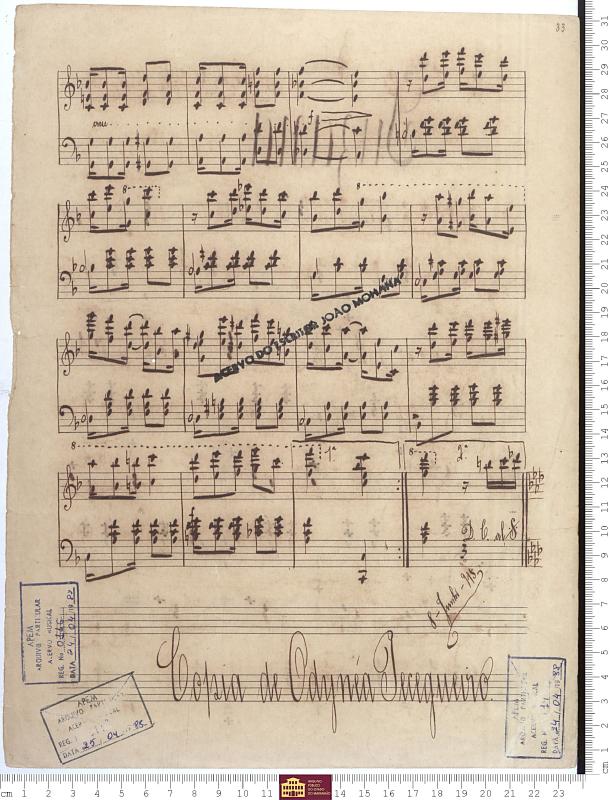 33
8
8
ACERVO DO ESCRITOR JOÃO MOHANA
8
1ª
8
2ª
D. C. al S
8 - Junho - 915
Copia de Odynéa
APEM
ARQUIVO PARTICULAR
ACERVO MUSICAL
REG. No
DATA 24 / 04 /
APEM
DATA 25 / 04 / 85
REG. N
DATA 24 / 04 / 88
ARQUIVO
PÚBLICO
DO ESTADO
DO MARANHÃO
cm 1 2 3 4 5 6 7 8 9 10 11 12 13 14 15 16 17 18 19 20 21 22 23
cm 1 2 3 4 5 6 7 8 9 10 11 12 13 14 15 16 17 18 19 20 21 22 23 24 25 26 27 28 29 30 31